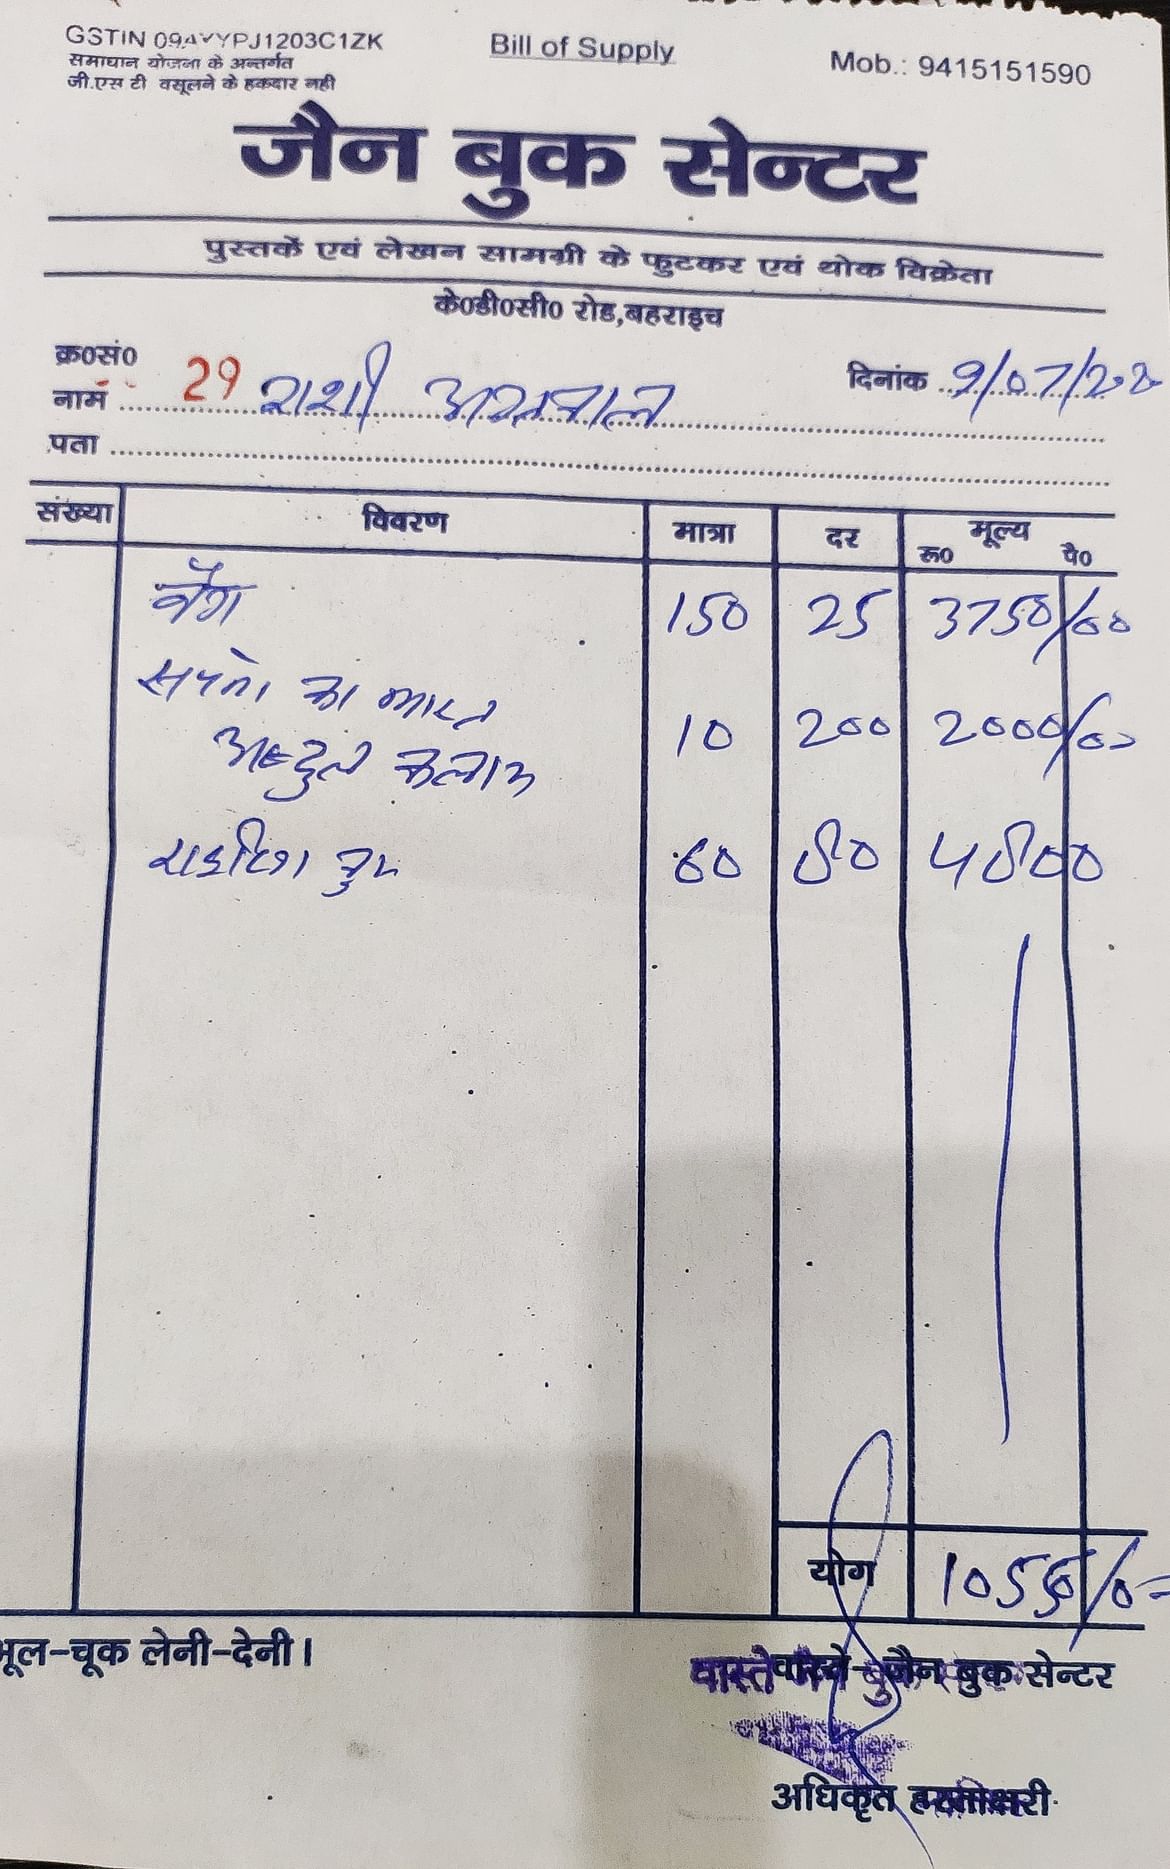 GSTIN 09AVYPJ1203C1ZK
Bill of Supply
Mob.: 9415151590
समाधान योजना के अन्तर्गत
जी.एस टी वसूलने के हकदार नही
जैन बुक सेन्टर
पुस्तकें एवं लेखन सामग्री के फुटकर एवं थोक विक्रेता
के0डी0सी0 रोड,बहराइच
क्र0सं0 29
दिनांक 9/07/22
नाम राशी अग्रवाल
पता
संख्या विवरण मात्रा दर मूल्य
रू0 पै0
बैग 150 25 3750/00
सपनो का भारत
अब्दुल कलाम 10 200 2000/00
60 80 4800
योग 10550/00
भूल-चूक लेनी-देनी।
वास्ते-जैन बुक सेन्टर
अधिकृत हस्ताक्षरी